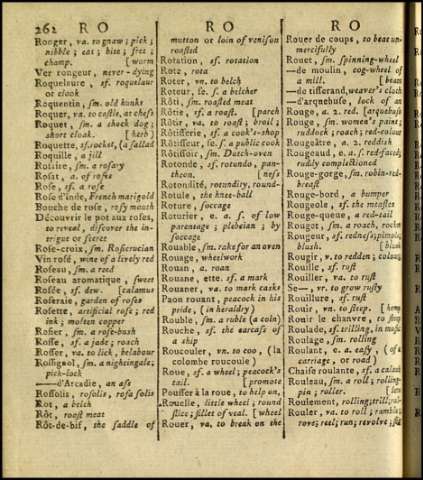 262 R O
R O
R O
Ronger, va. to gnaw; pick;
nibble; eat; bite; fret;
champ. [worm
Ver rongeur, never-dying
Roquelaure, sf. roquelaur
or cloak
Roquentin, sm. old hunks
Roquer, va. to castle, at chess
Roquet, sm. a shock dog;
short cloak. [herb)
Roquette, sf. rocket, (a sallad
Roquille, a jill
Rosaire, sm. a rosary
Rosat, a. of roses
Rose, sf. a rose
Rose d'inde, French marigold
Bouche de rose, rosy mouth
Découvrir le pot aux roses,
to reveal, discover the in-
trigue or secret
Rose-croix, sm. Rosicrucian
Vin rosé, wine of a lively red
Roseau, sm. a reed
Roseau aromatique, sweet
Rosée, sf. dew. [calamus
Roseraie, garden of roses
Rosette, artificial rose; red
ink; molten copper
Rosier, sm. a rose-bush
Rosse, sf. a jade; roach
Rosser, va. to lick, belabour
Rossignol, sm. a nightingale;
pick-lock
—d'Arcadie, an ass
Rossolis, rosolis, rosa solis
Rot, a belch
Rôt, roast meat
Rôt-de-bif, the saddle of
mutton or loin of venison
roasted
Rotation, sf. rotation
Rote, rota
Roter, vn. to belch
Roteur, se. s. a belcher
Rôti, sm. roasted meat
Rôtie, sf. a roast. [parch
Rôtir, va. to roast; broil;
Rôtisserie, sf. a cook's-shop
Rôtisseur, se. s. a public cook
Rôtissoir, sm. Dutch-oven
Rotonde, sf. rotundo, pan-
theon. [ness
Rotondité, rotundity, round-
Rotule, the knee-ball
Roture, soccage
Roturier, e a. s. of low
parentage; plebeian; by
soccage
Rouable, sm. rake for an oven
Rouage, wheelwork
Rouan, a. roan
Rouane, ette, sf. a mark
Rouaner, va. to mark casks
Paon rouant, peacock in his
pride, (in heraldry)
Rouble, sm. a ruble (a coin)
Rouche, sf. the carcass of
a ship
Roucouler, vn. to coo, (la
colombe roucoule)
Roue, sf. a wheel; peacock's
tail. [promote
Pousser à la roue, to help on,
Rouelle, little wheel; round
slice; fillet of veal. [wheel
Rouer, va. to break on the
Rouer de coups, to beat un-
mercifully
Rouet, sm. spinning-wheel
—de moulin, cog-wheel of
a mill. [beam
—de tisserand, weaver's cloth
—d'arquebuse, lock of an
Rouge, a. 2. red. [arquebuse
Rouge, sm. women's paint;
ruddock; roach; red-colour
Rougeâtre, a. 2. reddish
Rougeaud, e. a. s. red-faced;
ruddy complexioned
Rouge-gorge, sm. robin-red-
breast
Rouge-bord, a bumper
Rougeole, sf. the measles
Rouge-queue, a red-tail
Rouget, sm. a roach, rochet
Rougeur, sf. redness; pimple;
blush. [blush
Rougir, v. to redden; colour;
Rouille, sf. rust
Rouiller, va. to rust
Se—, vr. to grow rusty
Rouillure, sf. rust
Rouir, vn. to steep. [hemp
Rouir le chanvre, to steep
Roulade, sf. trilling, in music
Roulage, sm. rolling
Roulant, e. a. easy (of a
carriage, or road)
Chaise roulante, sf. a calash
Rouleau, sm. a roll; rolling-
pin; roller. [lon
Roulement, rolling; trill; roll
Rouler, va. to roll; rumble;
rove; reel; run; revolve; list